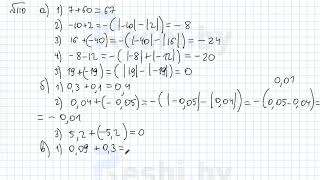 №110 а) 1) 7+60=67
2) -10+2=-(|-10|-|2|)=-8
3) 16+(-40)=-(|-40|-|16|)=-24
4) -8-12=-(|-8|+|-12|)=-20
5) 19+(-19)=(|19|-|-19|)=0
б) 1) 0,3+0,1=0,4
0,01
2) 0,04+(-0,05)=-(|-0,05|-|0,04|)=-(0,05-0,04)=
=-0,01
3) 5,2+(-5,2)=0
в) 1) 0,09+0,3=